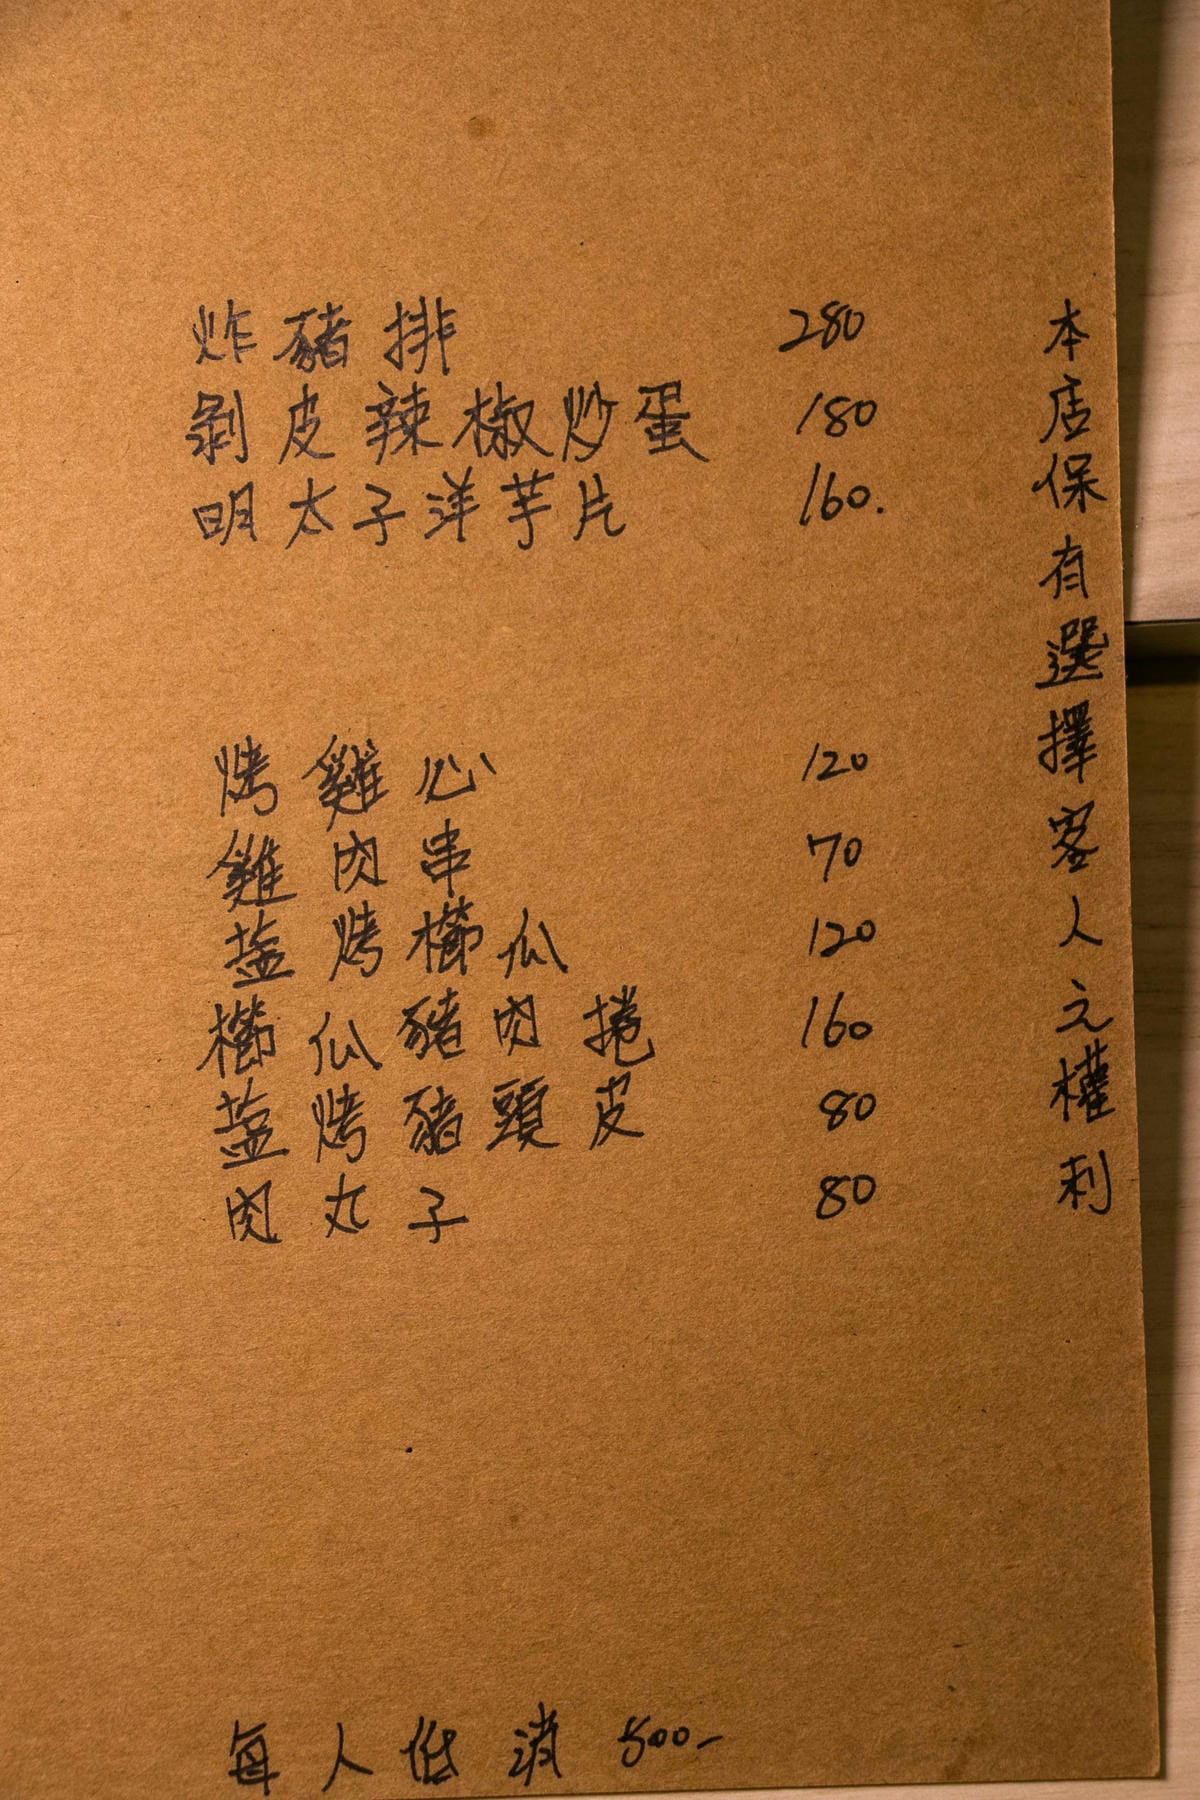 炸豬排 280
剝皮辣椒炒蛋 180
明太子洋芋片 160.
烤雞心 120
雞肉串 70
盐烤櫛瓜 120
櫛瓜豬肉捲 160
盐烤豬頭皮 80
肉丸子 80
每人低消 500-
本店保有選擇客人之權利